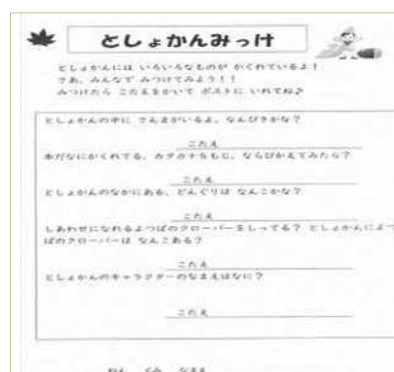 としょかんみっけ
としょかんには いろいろなものが かくれているよ!
さあ、みんなで みつけてみよう!!
みつけたら こたえをかいて ポストに いれてね♪
としょかんの中に さんまがいるよ、なんびきかな?
こたえ
本だなにかくれてる、カタカナ5もじ、ならびかえてみたら?
こたえ
としょかんのなかにある、どんぐりは なんこかな?
こたえ
しあわせになれるよつばのクローバーをしってる? としょかんによつ
ばのクローバーは なんこある?
こたえ
としょかんのキャラクターのなまえはなに?
こたえ
ねん くみ なまえ